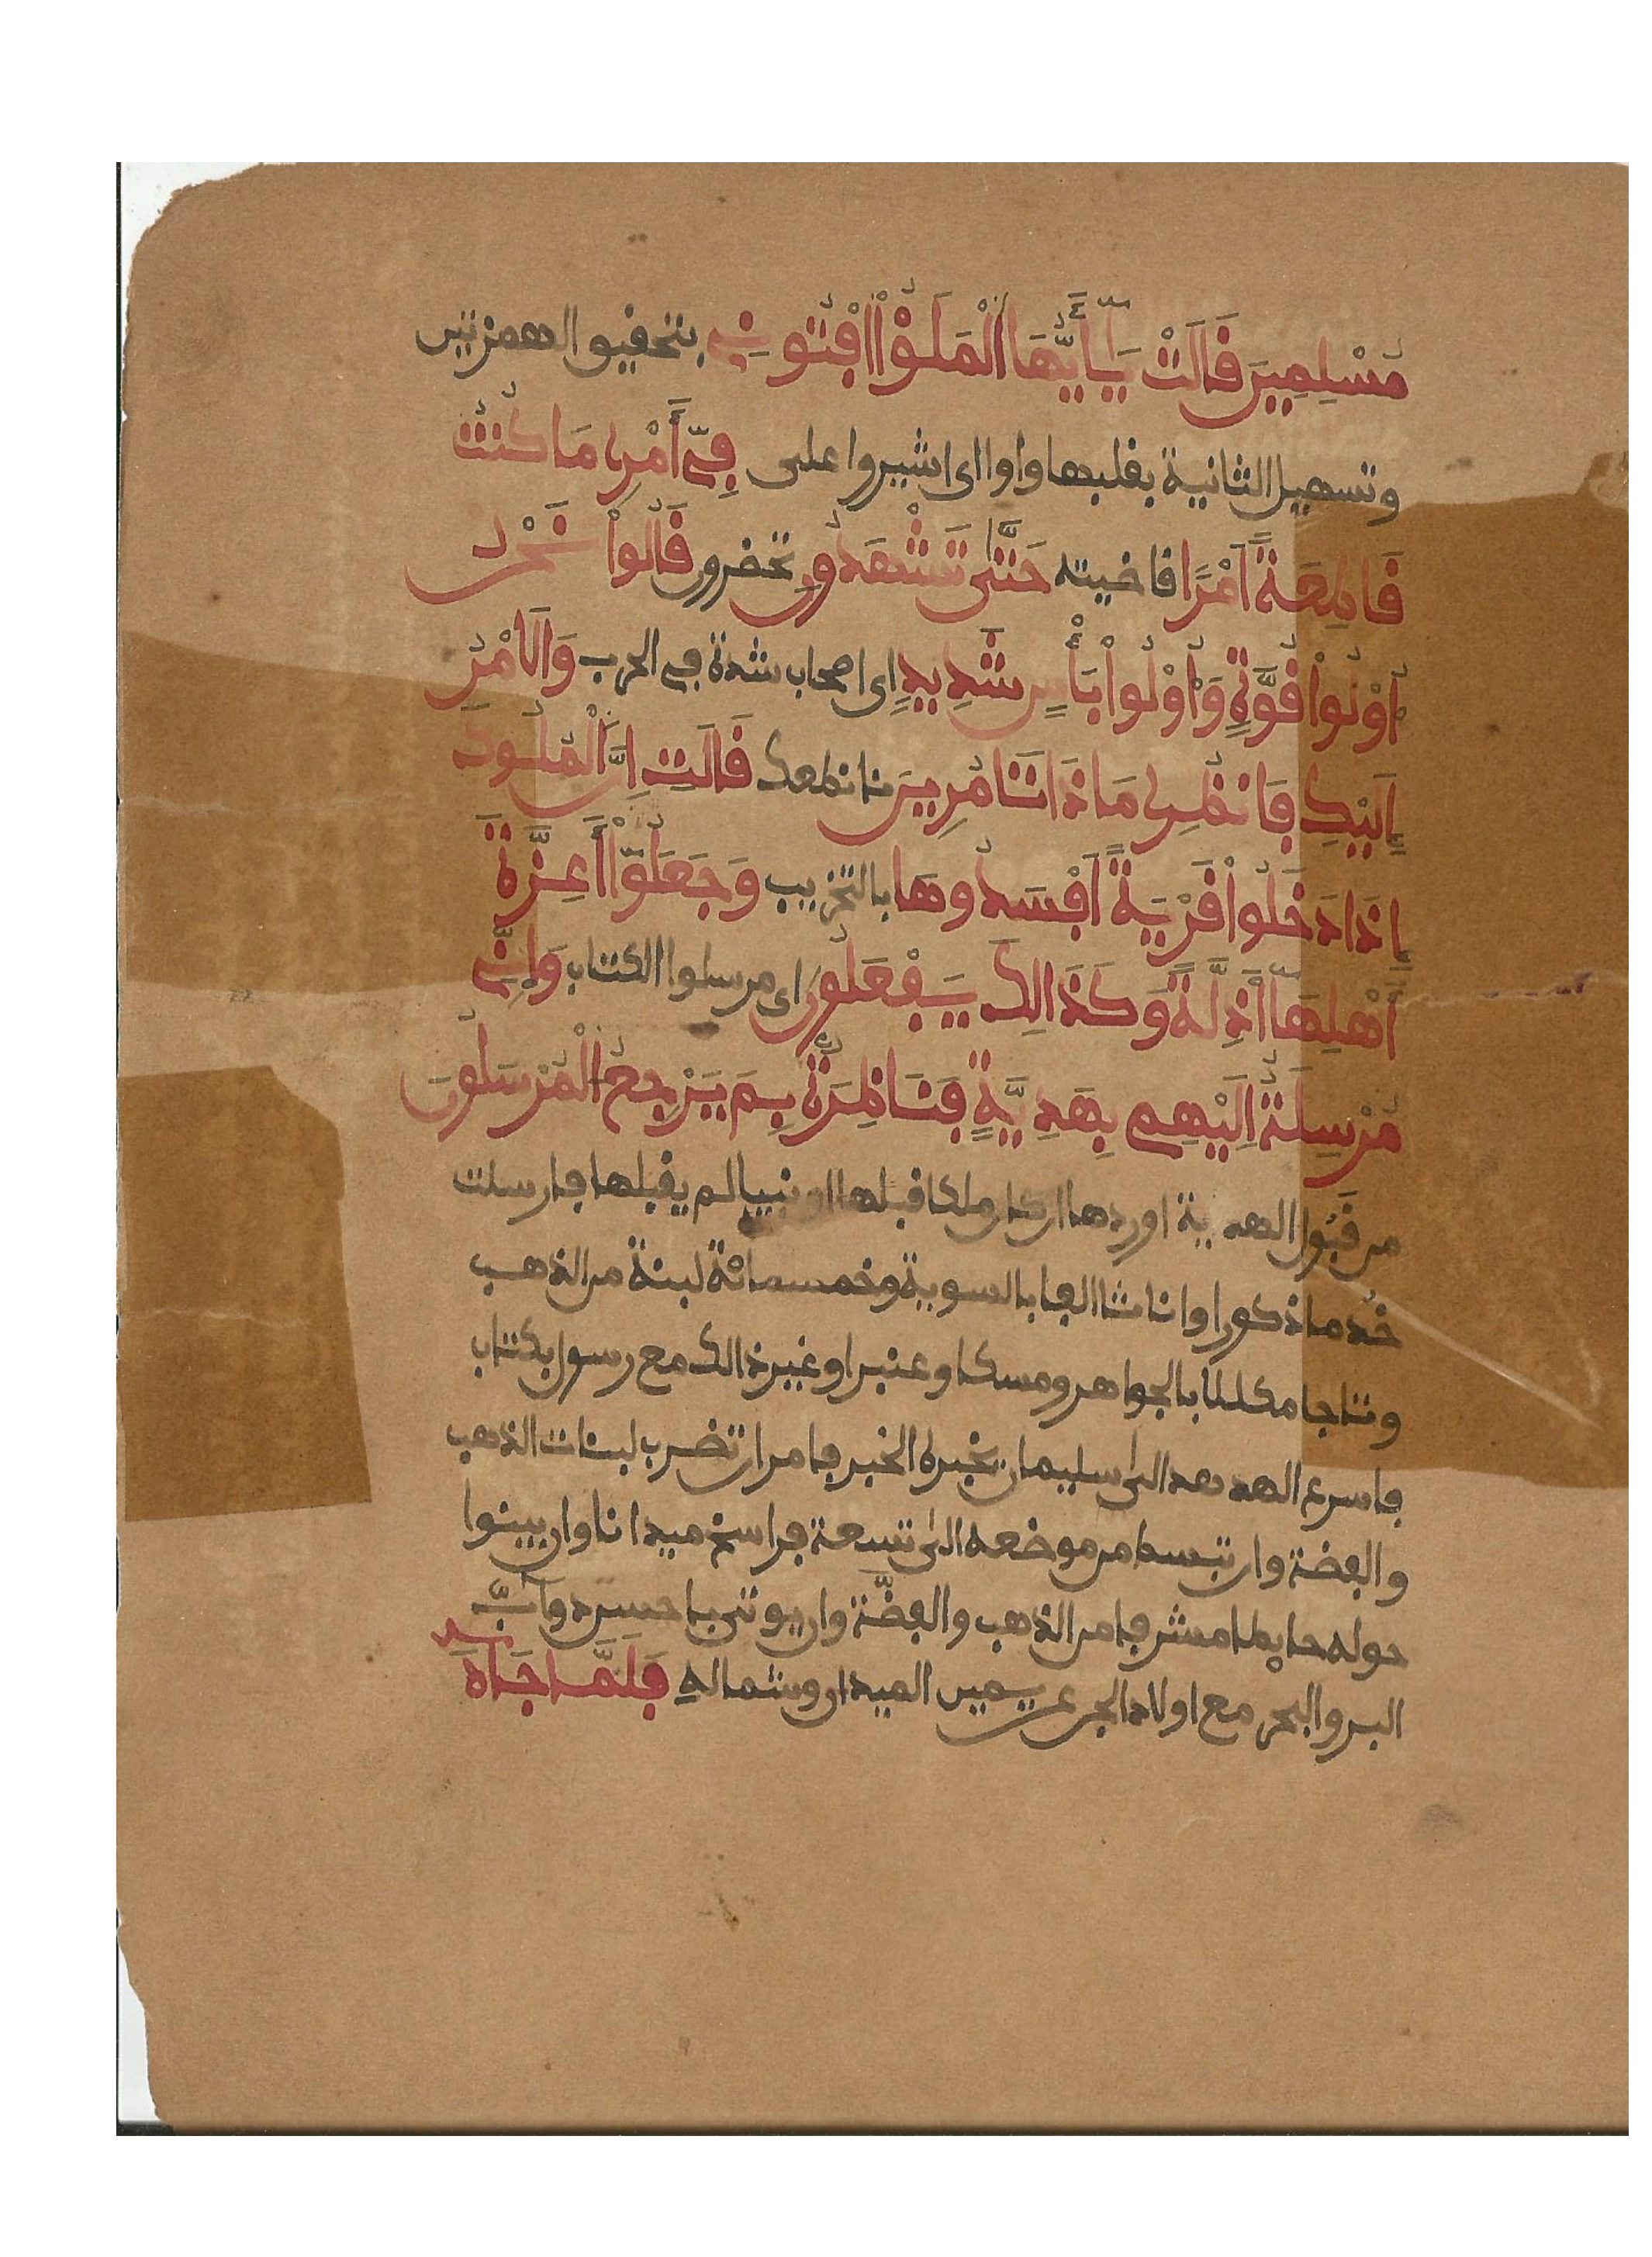 مُسْلِمِينَ قَالَتْ يَٰٓأَيُّهَا اَلْمَلَؤُاْ افْتُونِے بتحقيق الهمزتين
وتسهيل الثانية بقلبها واوا اى اشيروا على فِےٓ أَمْرِے مَا كُنتُ
قَاطِعَةً اَمْرًا قاضيته حَتَّىٰ تَشْهَدُونِ تحضرون قَالُواْ نَحْنُ
أُوْلُواْ قُوَّةٍ وَأُوْلُواْ بَأْسٍ شَدِيدٍ اى اصحاب شدة في الحرب وَالَامْرُ
إِلَيْكِ فَانظُرِے مَاذَا تَامُرِينَ نا نطعك قَالَتِ اِنَّ اَلْمُلُوكَ
إِذَا دَخَلُواْ قَرْيَةً اَفْسَدُوهَا بالتخريب وَجَعَلُوٓاْ أَعِزَّةَ
أَهْلِهَآ أَذِلَّةً وَكَذَالِكَ يَفْعَلُونَ اى مرسلوا الكتاب وَإِنِّے
مُرْسِلَةٌ اِلَيْهِم بِهَدِيَّةٍ فَنَاظِرَةٌ بِمَ يَرْجِعُ الْمُرْسَلُونَ
من قَبُول الهدية اوردها ان كان ملكا قبلها او نبيا لم يقبلها فارسلت
خُدما ذكورا واناثا الفا بالسوية وخمسمائة لبنة من الذهب
وتاجا مكللا بالجواهر ومسكا وعنبرا وغير ذالك مع رسول بكتاب
فاسرع الهدهد الى سليمان يخبره الخبر فامر ان تضرب لبنات الذهب
والفضة وان تبسط من موضعه الى تسعة فراسخ ميدانا وان يبنوا
حوله حايطا مشرفا من الذهب والفضّة وان يوتى باحسن دوآبّ
البر والبحر مع اولاد الجن عن يمين الميدان وشماله فَلَمَّا جَآءَ